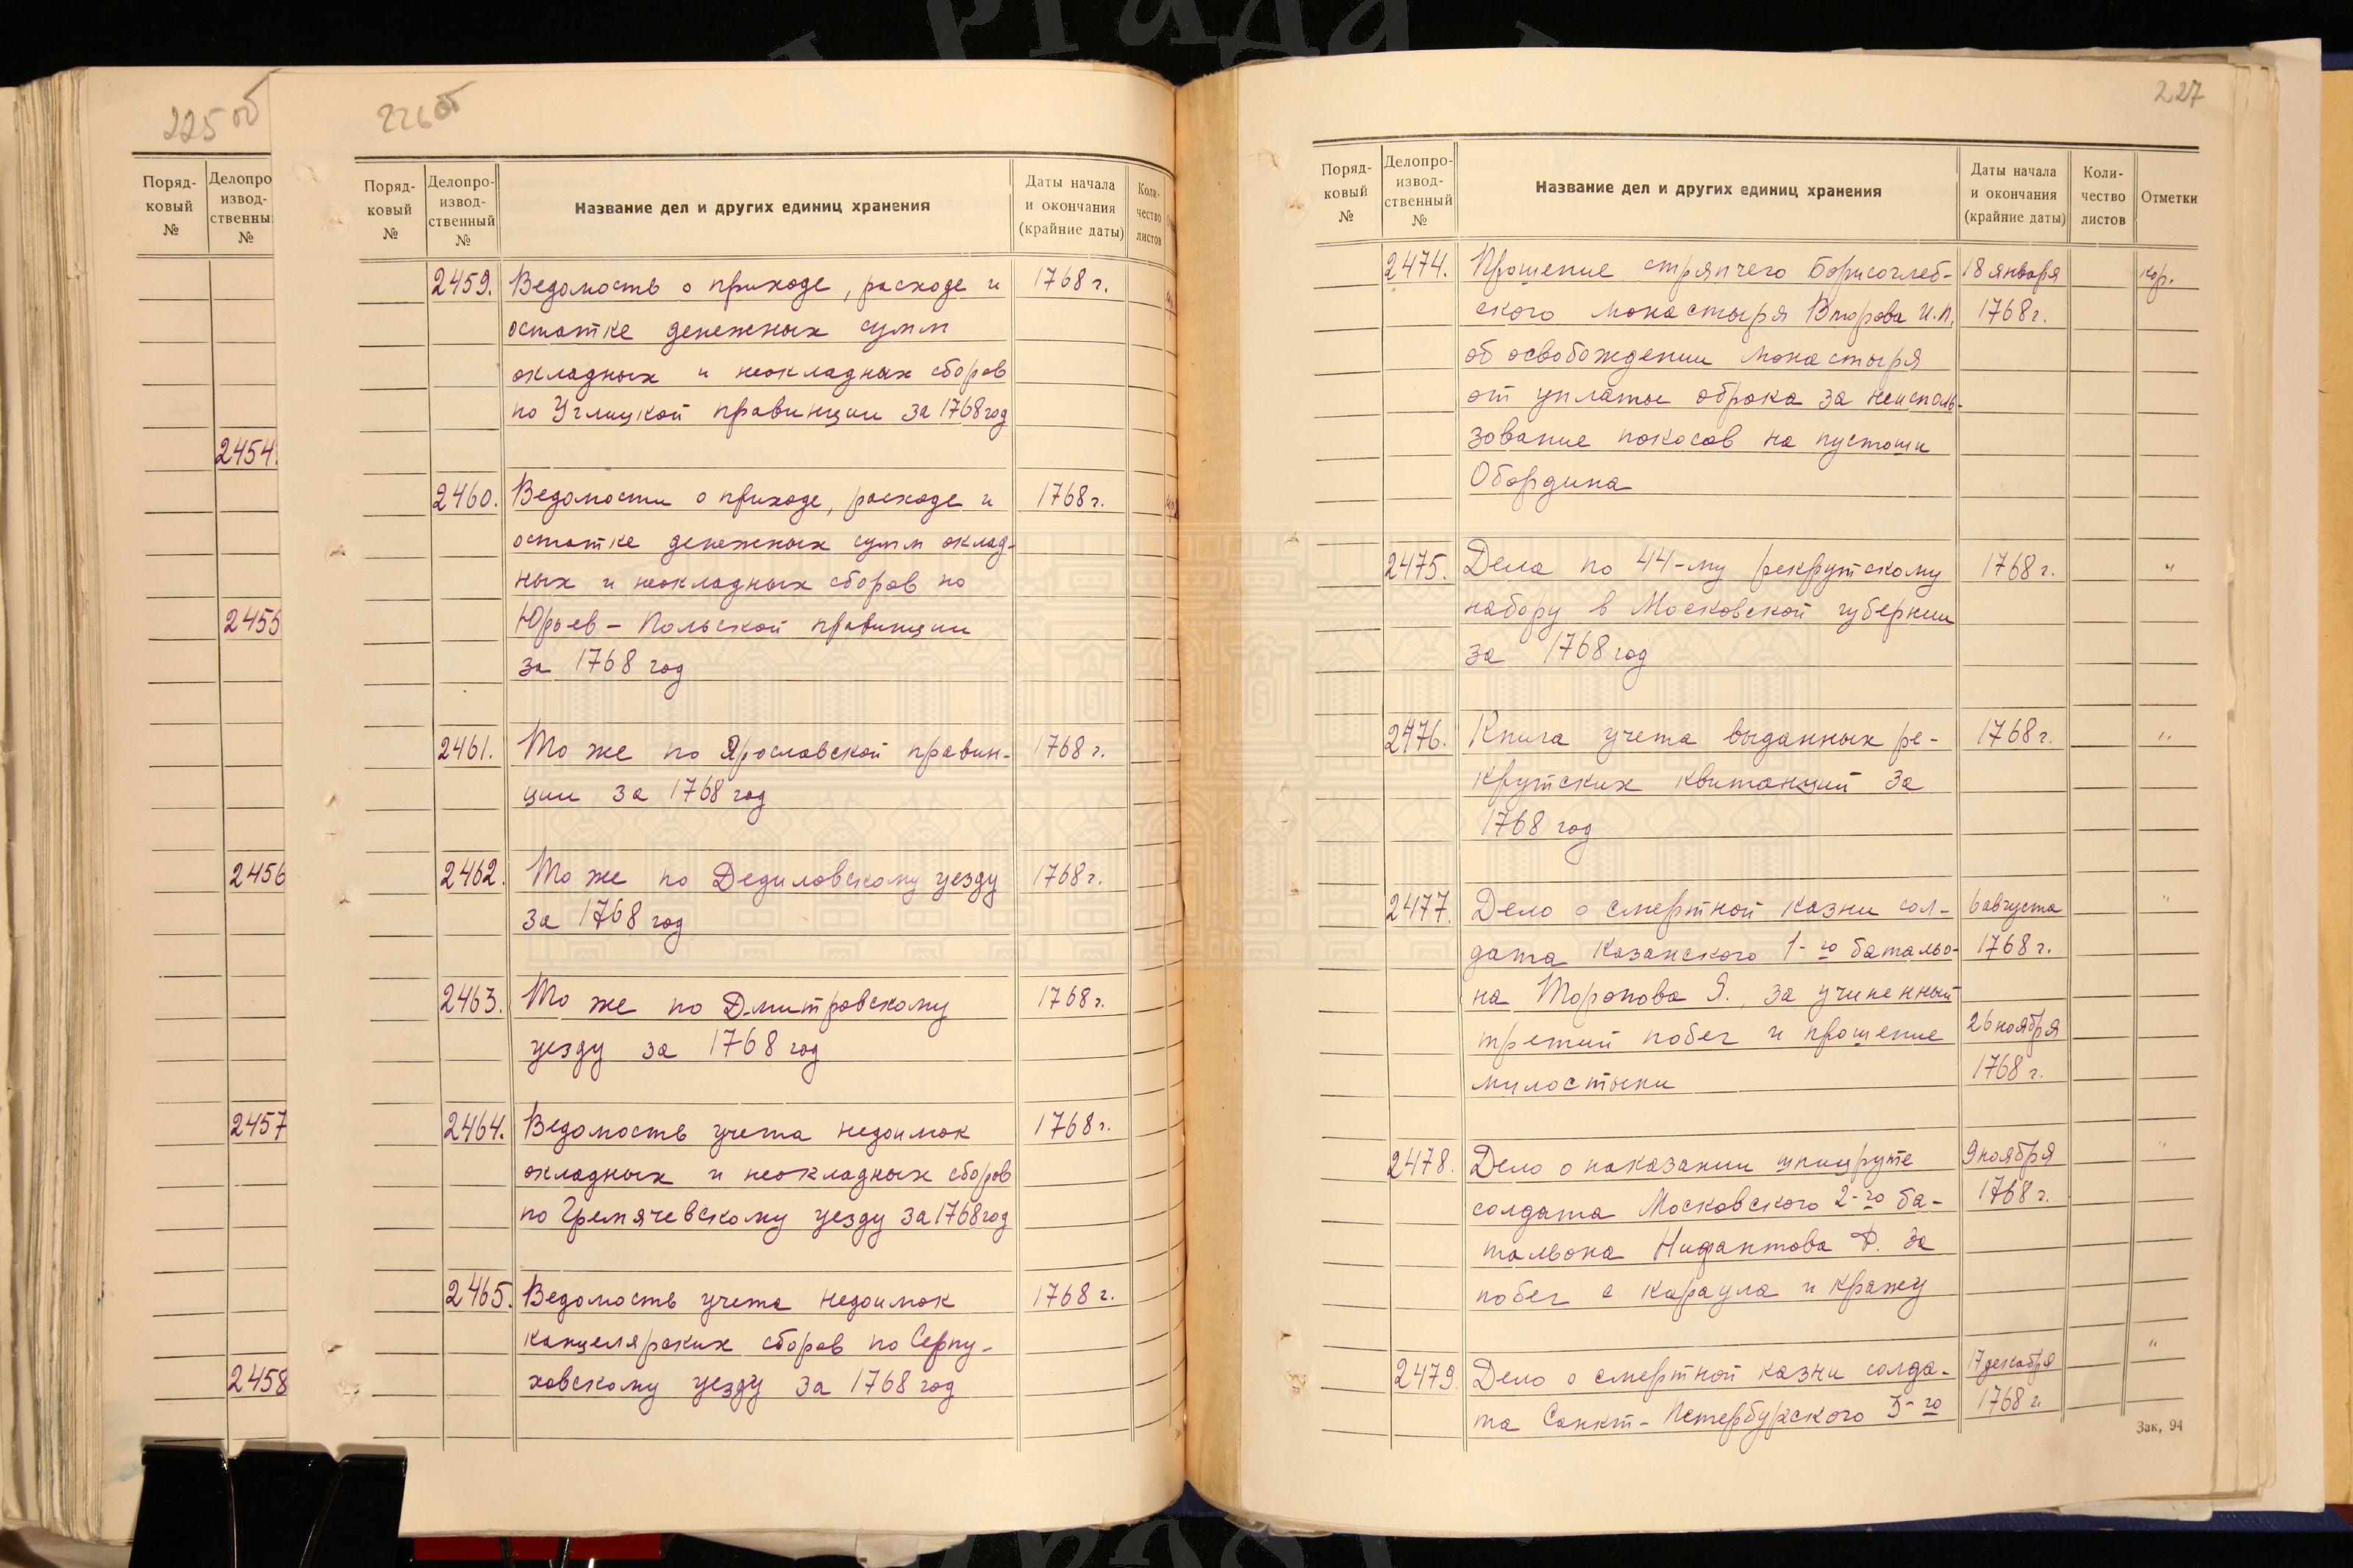 225 об
Поряд-
ковый
№
Делопро
извод-
ственны
№
2454.
2455
2456
2457
2458
226 об
Поряд-
ковый
№
Делопро-
извод-
ственный
№
Название дел и других единиц хранения
Даты начала
и окончания
(крайние даты)
Коли-
чество
листов
2459. Ведомость о приходе, расходе и 1768 г.
остатке денежных сумм
окладных и неокладных сборов
по Углицкой провинции за 1768 год
2460. Ведомости о приходе, расходе и 1768 г.
остатке денежных сумм оклад-
ных и неокладных сборов по
Юрьев-Польской провинции
за 1768 год
2461. То же по Ярославской провин- 1768 г.
ции за 1768 год
2462. То же по Дедиловскому уезду 1768 г.
за 1768 год
2463. То же по Дмитровскому 1768 г.
уезду за 1768 год
2464. Ведомость учета недоимок 1768 г.
окладных и неокладных сборов
по Гремячевскому уезду за 1768 год
2465. Ведомость учета недоимок 1768 г.
канцелярских сборов по Серпу-
ховскому уезду за 1768 год
227
Поряд-
ковый
№
Делопро-
извод-
ственный
№
Название дел и других единиц хранения
Даты начала
и окончания
(крайние даты)
Коли-
чество
листов
Отметки
2474. Прошение стряпчего Борисоглеб- 18 января кор.
ского монастыря Второва И.П. 1768 г.
об освобождении монастыря
от уплаты оброка за неисполь-
зование покосов на пустоши
Обордина
2475. Дела по 44-му рекрутскому 1768 г. "
набору в Московской губернии
за 1768 год
2476. Книга учета выданных ре- 1768 г. "
крутских квитанций за
1768 год
2477. Дело о смертной казни сол- 6 августа "
дата Казанского 1-го батальо- 1768 г.
на Торопова Я., за учиненный
третий побег и прошение 26 ноября
милостыни 1768 г.
2478. Дело о наказании шпицруте 9 ноября "
солдата Московского 2-го ба- 1768 г.
тальона Нифантова Ф. за
побег с караула и кражу
2479. Дело о смертной казни солда- 17 декабря "
та Санкт-Петербургского 5-го 1768 г.
Зак, 94